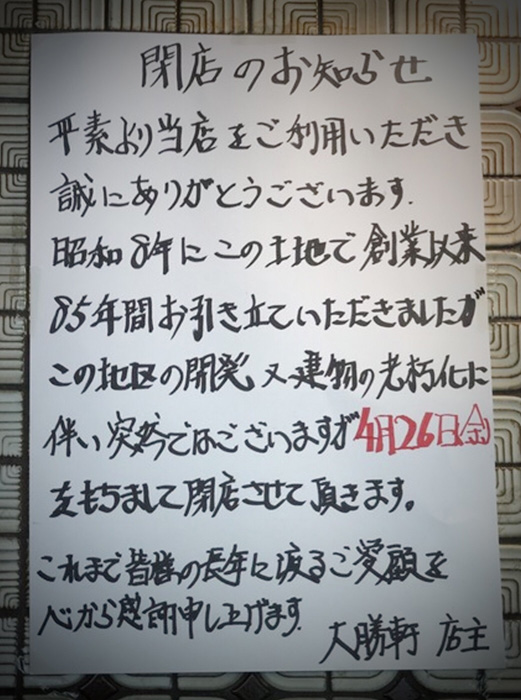 閉店のお知らせ
平素より当店をご利用いただき
誠にありがとうございます.
昭和8年にこの土地で創業以来
85年間お引き立ていただきましたが
この地区の開発又建物の老朽化に
伴い突然ではございますが4月26日(金)
をもちまして閉店させて頂きます。
これまで皆様の長年に渡るご愛顧を
心から感謝申し上げます.
大勝軒 店主